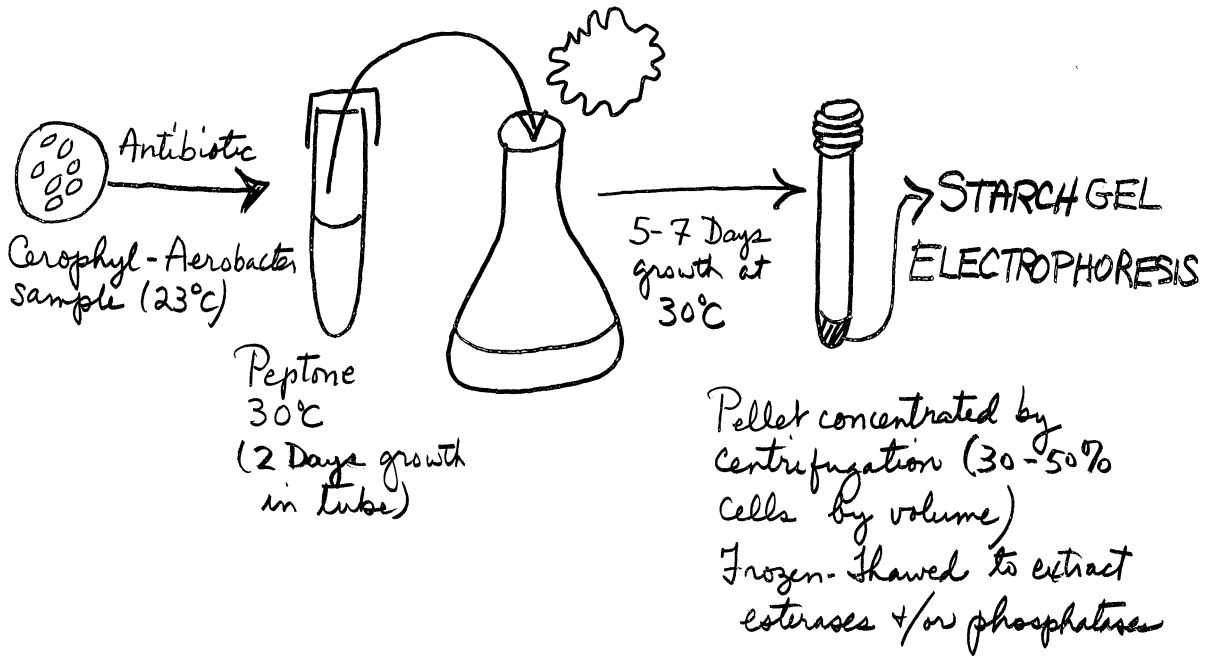 Antibiotic
Cerophyl-Aerobacter
sample (23°C)
Peptone
30°C
(2 Days growth
in tube)
5-7 Days
growth at
30°C
STARCH GEL
ELECTROPHORESIS
Pellet concentrated by
centrifugation (30-50%
cells by volume)
Frozen-Thawed to extract
esterases +/or phosphatases